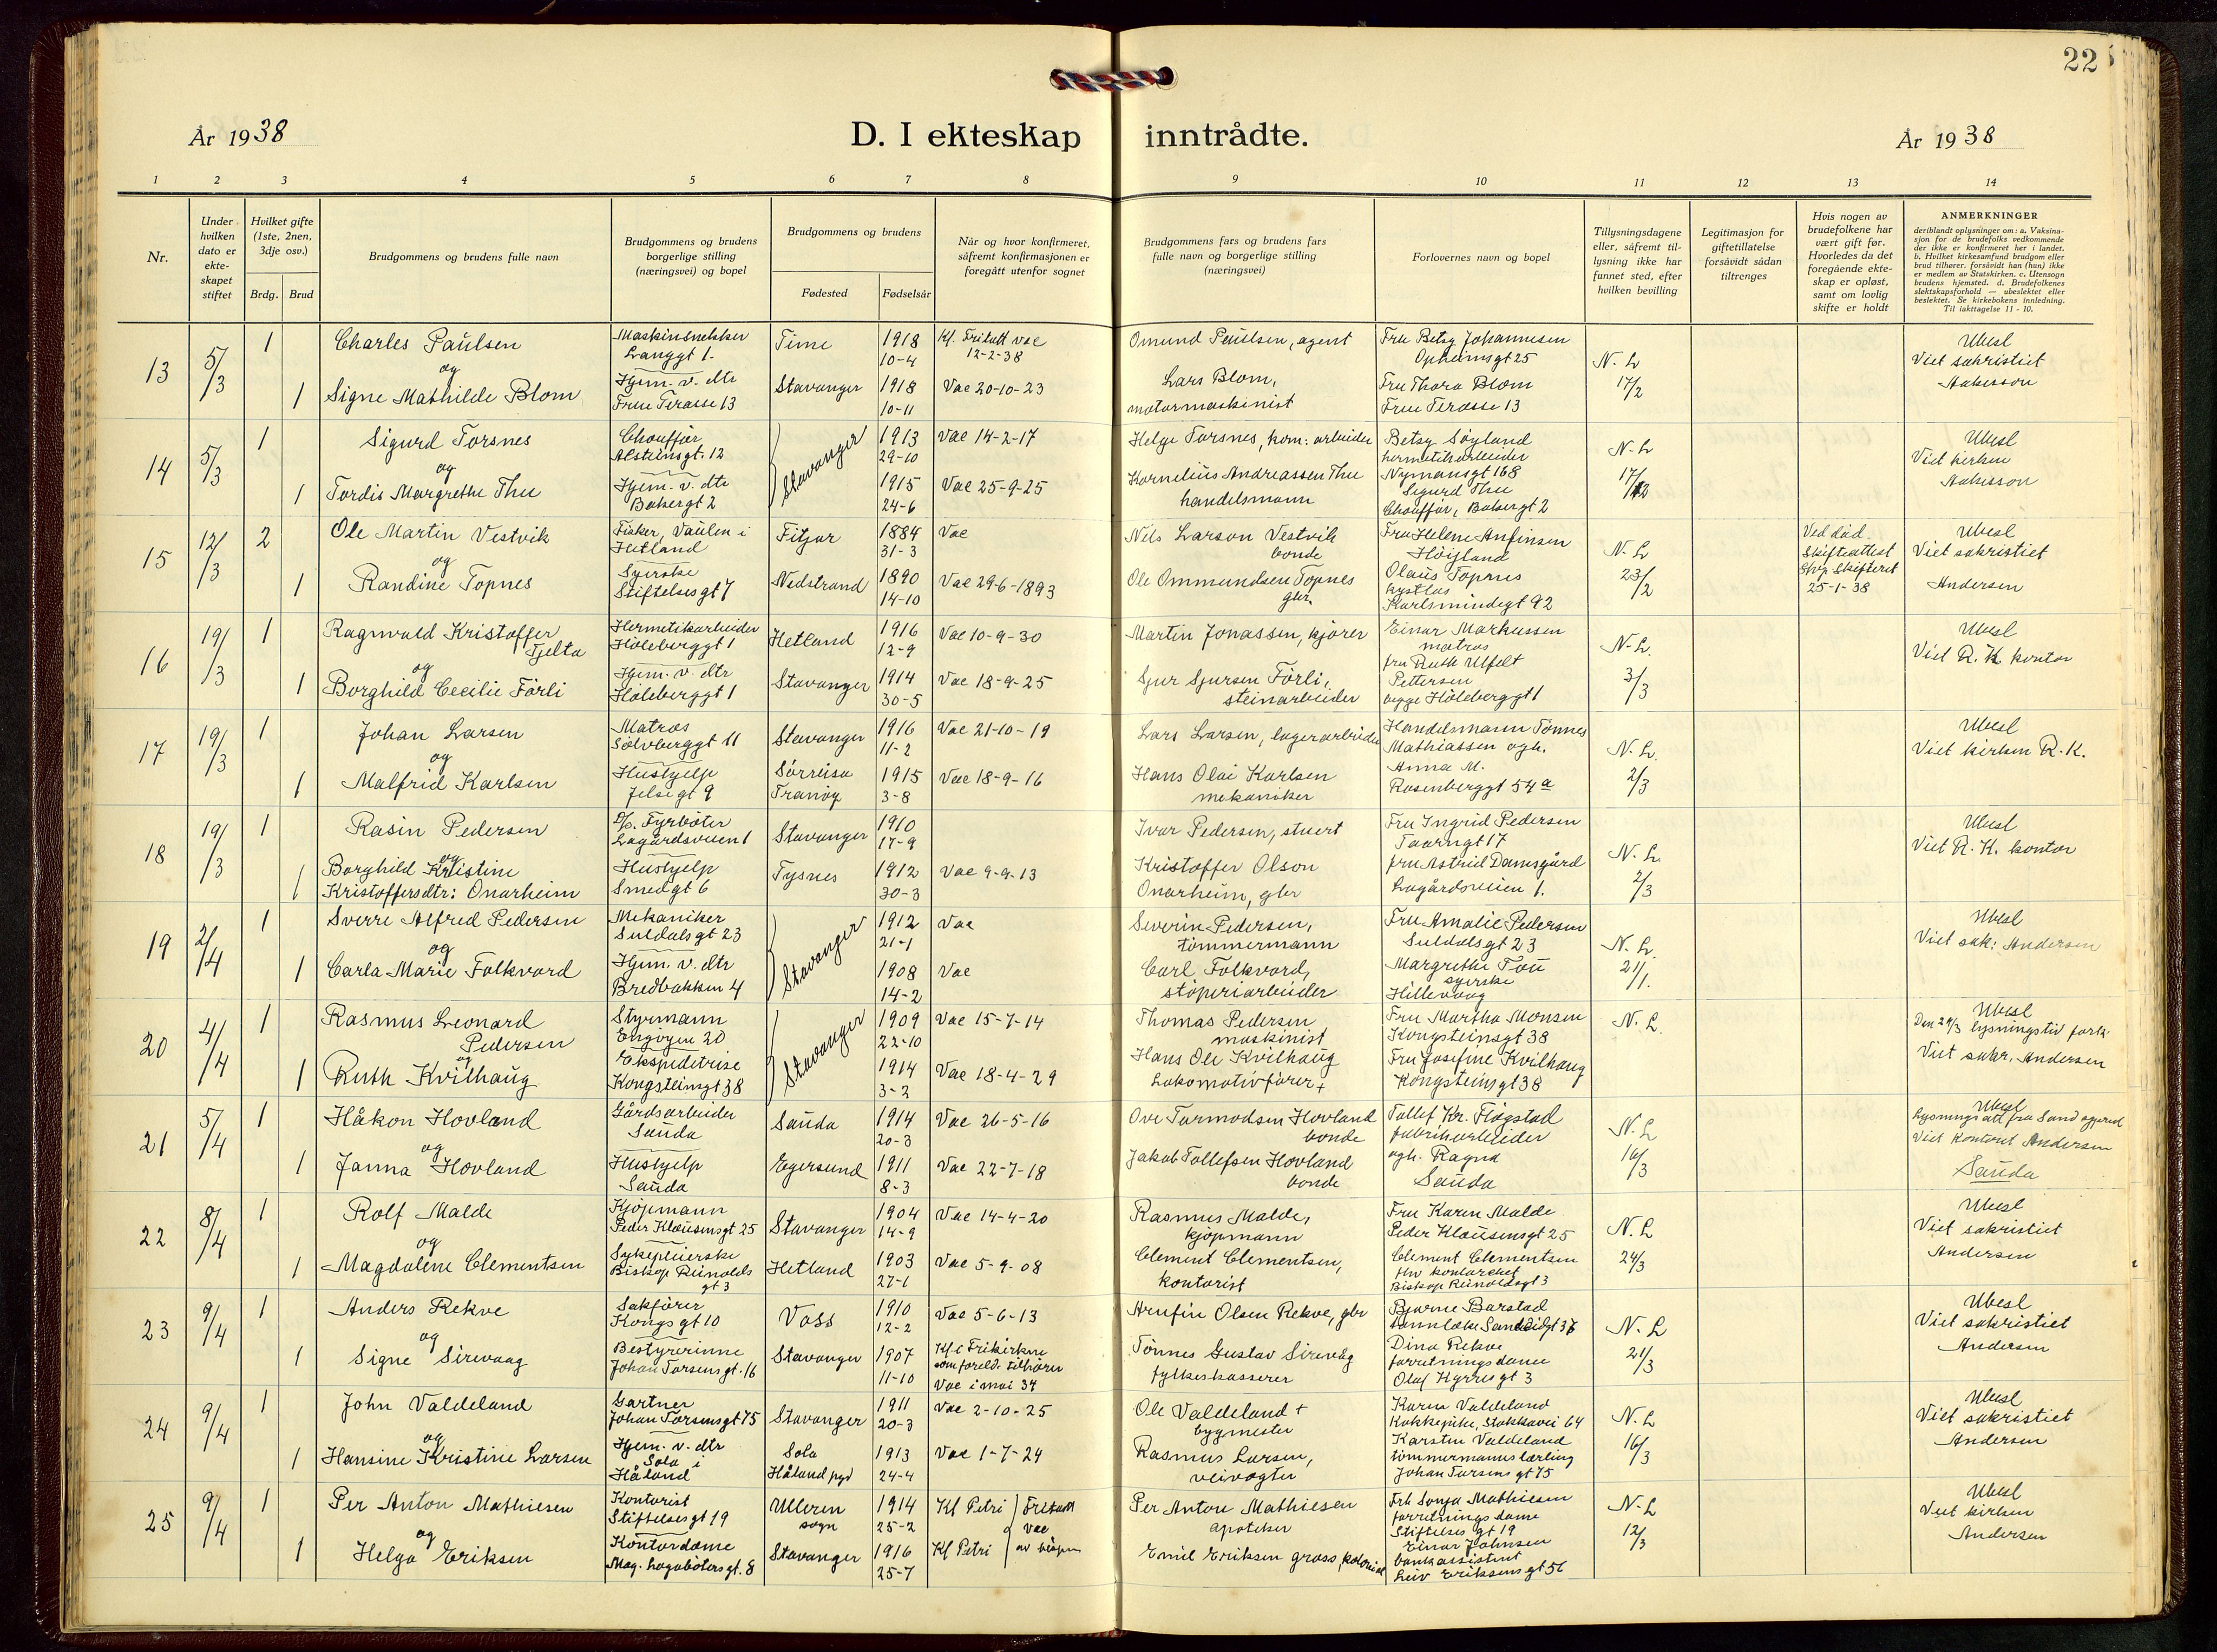 22
År 1938
D. I ekteskap inntrådte.
År 1938
1 2 3 4 5 6 7 8 9 10 11 12 13 14
Nr.
Under hvilken dato er ekte- skapet stiftet
Hvilket gifte (1ste, 2nen, 3dje osv.)
Brdg. Brud
Brudgommens og brudens fulle navn
Brudgommens og brudens borgerlige stilling (næringsvei) og bopel
Brudgommens og brudens
Fødested
Fødselsår
Når og hvor konfirmeret, såfremt konfirmasjonen er foregått utenfor sognet
Brudgommens fars og brudens fars fulle navn og borgerlige stilling (næringsvei)
Forlovernes navn og bopel
Tillysningsdagene eller, såfremt til- lysning ikke har funnet sted, efter hvilken bevilling
Legitimasjon for giftetillatelse forsåvidt sådan tiltrenges
Hvis nogen av brudefolkene har vært gift før. Hvorledes da det foregående ekte- skap er opløst, samt om lovlig skifte er holdt
ANMERKNINGER
deriblandt oplysninger om: a. Vaksina- sjon for de brudefolks vedkommende der ikke er konfirmeret her i landet. b. Hvilket kirkesamfund brudgom eller brud tilhører, forsåvidt han (hun) ikke er medlem av Statskirken. c. Utensogn brudens hjemsted. d. Brudefolkenes slektskapsforhold — ubeslektet eller beslektet. Se kirkebokens innledning. Til iakttagelse 11 - 10.
13 5/3 1 Charles Paulsen Maskinsnekker Langgt 1. Time 1918 10-4 Kf. Fritatt vac 12-2-38 Omund Paulsen, agent Fru Betsy Johannesen Opheimsgt 25 N. L 17/2 Ubesl Viet sakristiet
og
1 Signe Mathilde Blom Hjem. v. dtr Frue Terasse 13 Stavanger 1918 10-11 Vac 20-10-23 Lars Blom, motormaskinist Fru Thora Blom Frue Terasse 13
14 5/3 1 Sigurd Torsnes Chauffør Alsteinsgt. 12 Stavanger 1913 29-10 Vac 14-2-17 Helge Torsnes, kom: arbeider Betsy Søyland hermetikarbeider Nymansgt 168 N-L 17/2 Ubesl Viet kirken
og
1 Tordis Margrethe Thu Hjem. v. dtr Bakergt 2 1915 24-6 Vac 25-9-25 Kornelius Andreassen Thu handelsmann Sigurd Thu Chauffør, Bakergt 2
15 12/3 2 Ole Martin Vestvik Fisker, Vaulen i Hetland Fitjar 1884 31-3 Vac Nils Larson Vestvik bonde Fru Helene Anfinsen Höijland N. L 23/2 Ved død. Skifteattest 25-1-38 Ubesl Viet sakristiet Andersen
og
1 Randine Topnes Syerske Stiftelsesgt 7 Nedstrand 1890 14-10 Vac 29-6-1893 Ole Ommundsen Topnes gbr. Olaus Topnes Karlsmindegt 92
16 19/3 1 Ragnvald Kristoffer Tjelta Hermetikarbeider Höleberggt 1 Hetland 1916 12-9 Vac 10-9-30 Martin Jonassen, kjører Einar Markussen matros N-L. 3/3 Ubesl Viet R. K kontor
og
1 Borghild Cecilie Förli Hjem. v. dtr Höleberggt 1 Stavanger 1914 30-5 Vac 18-9-25 Sjur Sjursen Förli, steinarbeider fru Ruth Ulfelt Pettersen begge Höleberggt 1
17 19/3 1 Johan Larsen Matros Sølvberggt 11 Stavanger 1916 11-2 Vac 21-10-19 Lars Larsen, lagerarbeider Handelsmann Tønnes Mathiassen ogh. Anna M. Rosenberggt 54a N. L. 2/3 Ubesl Viet kirken R. K.
og
1 Malfrid Karlsen Hushjelp Jelsegt 9 Sørreisa Tranøy 1915 3-8 Vac 18-9-16 Hans Olai Karlsen mekaniker
18 19/3 1 Rasin Pedersen D/s. Fyrbøter Lagårdsveien 1 Stavanger 1910 17-9 Ivar Pedersen, stuert Fru Ingrid Pedersen Taarngt 17 N. L. 2/3 Ubesl Viet R. K. kontor
og
1 Borghild Kristine Kristoffersdtr: Onarheim Hushjelp Smedgt 6 Tysnes 1912 30-3 Vac 9-9-13 Kristoffer Olson Onarheim, gbr fru Astrid Damsgård Lagårdsveien 1.
19 2/4 1 Sverre Alfred Pedersen Mekaniker Suldalsgt 23 Stavanger 1912 21-1 Vac Severin Pedersen, tømmermann Fru Amalie Pedersen Suldalsgt 23 N. L. 21/1. Ubesl Viet sak: Andersen
og
1 Carla Marie Folkvord Hjem. v. dtr Bredbakken 4 1908 14-2 Vac Carl Folkvord, støperiarbeider Margrethe Tou syerske Hillevaag
20 4/4 1 Rasmus Leonard Pedersen Styrmann Engøyen 20 Stavanger 1909 22-10 Vac 15-7-14 Thomas Pedersen maskinist Fru Martha Monsen Kongsteinsgt 38 N. L. Ubesl Viet sakr. Andersen
og
1 Ruth Kvilhaug Ekspeditrise Kongsteinsgt 38 1914 3-2 Vac 18-4-29 Hans Ole Kvilhaug Lokomotivfører + Fru Josefine Kvilhaug Kongsteinsgt 38
21 5/4 1 Håkon Hovland Gårdsarbeider Sauda Sauda 1914 20-3 Vac 26-5-16 Ove Tormodsen Hovland bonde Tollef Kr. Fløgstad fabrikarbeider N. L 16/3 Ubesl Viet kontoret Andersen Sauda
og
1 Janna Hovland Hushjelp Sauda Egersund 1911 8-3 Vac 22-7-18 Jakob Tollefsen Hovland bonde ogh. Ragna Sauda
22 8/4 1 Rolf Malde Kjøpmann Peder Klausensgt 25 Stavanger 1904 14-9 Vac 14-4-20 Rasmus Malde, kjøpmann Fru Karen Malde Peder Klausensgt 25 N. L 24/3 Ubesl Viet sakristiet Andersen
og
1 Magdalene Clementsen Sykepleierske Biskop Reinolds gt 3 Hetland 1903 27-1 Vac 5-9-08 Clement Clementsen, kontorist Clement Clementsen Biskop Reinoldsgt 3
23 9/4 1 Anders Rekve Sakfører Kongsgt 10 Voss 1910 12-2 Vac 5-6-13 Arnfin Olsen Rekve, gbr Bjarne Barstad N. L 21/3 Ubesl Viet sakristiet Andersen
og
1 Signe Sirevaag Bestyrerinne Johan Torsensgt. 16 Stavanger 1907 11-10 Kf i Frikirken som foreld. tilhører Vac i mai 34 Tønnes Gustav Sirevåg fylkeskasserer Dina Rekve forretningsdame Olaf Kyrresgt 3
24 9/4 1 John Valdeland Gartner Johan Torsensgt 75 Stavanger 1911 20-3 Vac 2-10-25 Ole Valdeland + bygmester Karen Valdeland Kokkepike, Stokkavei 64 N. L 16/3 Ubesl Viet sakristiet Andersen
og
1 Hansine Kristine Larsen Hjem. v. dtr Sola i Håland Sola Håland pgd 1913 24-4 Vac 1-7-24 Rasmus Larsen, veivogter Karsten Valdeland tømmermannslærling Johan Torsensgt 75
25 9/4 1 Per Anton Mathiesen Kontorist Stiftelsesgt 19 Ullern sogn 1914 25-2 Kf Petri Fritatt vac av bispen Per Anton Mathiesen apoteker Frk Sonja Mathiesen forretningsdame Stiftelsesgt 19 N-L 12/3 Ubesl Viet kirken Andersen
og
1 Helga Eriksen Kontordame Mag. Lagabøtersgt. 8 Stavanger 1916 25-7 Kf Petri Emil Eriksen gross, kolonial Einar Johnsen bankassistent Leiv Eriksensgt 56